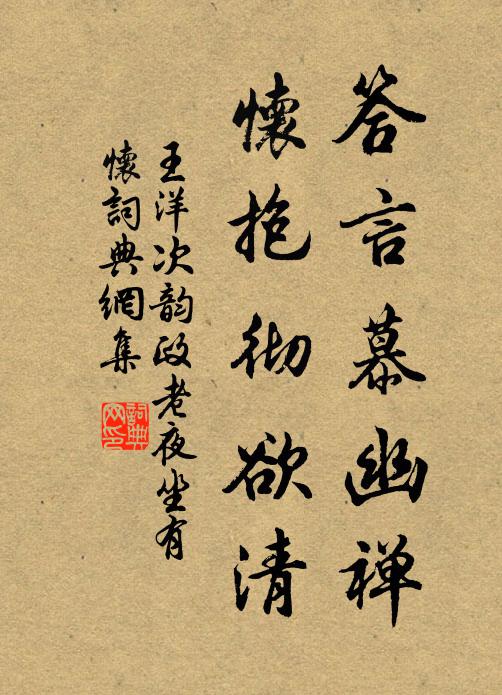 答言慕幽禅
懷抱彻欲清
王洋次韵政老夜坐有
懷詞典網集
詞典
网印